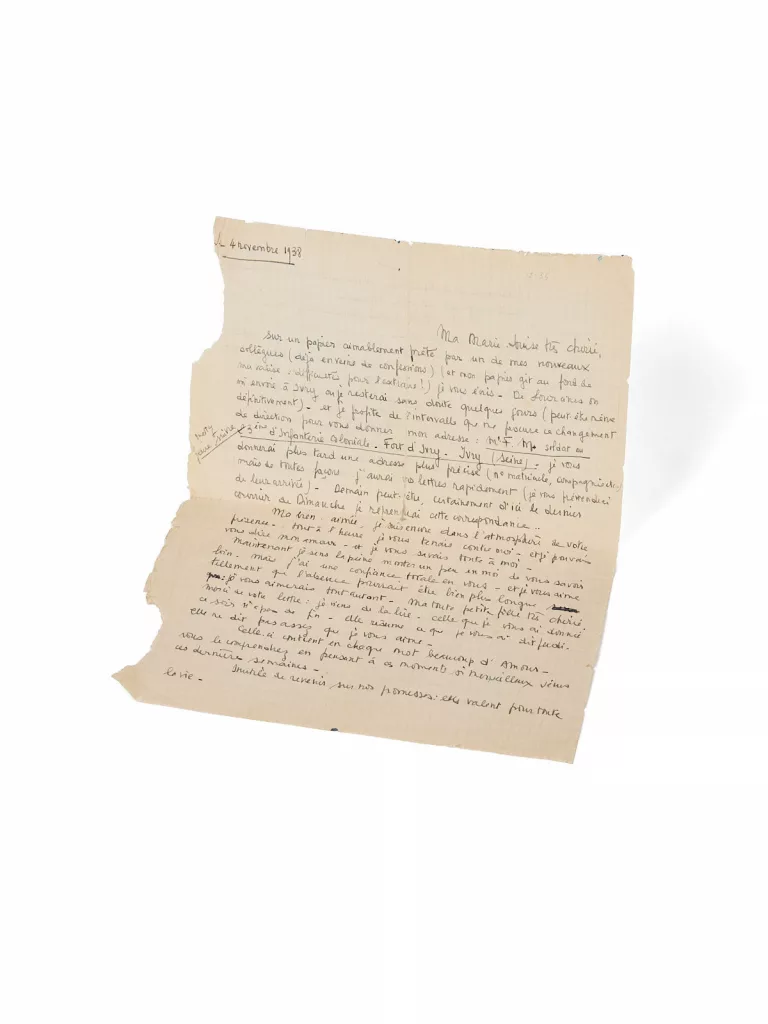 4 novembre 1938
Ma Marie Louise très chérie,
Sur un papier aimablement prêté par un de mes nouveaux
collègues (déjà en veine de confessions) (et mon papier gît au fond de
ma valise : difficultés pour l'extraire !) je vous écris - De on
m'envoie à Ivry où je resterai sans doute quelques jours (peut-être même
définitivement) - et je profite de l'intervalle que me procure ce changement
de direction pour vous donner mon adresse : Mr F. M. soldat au
23ème d'Infanterie Coloniale - Fort d'Ivry - Ivry (Seine) - je vous
pour suivre
donnerai plus tard une adresse plus précise (no matricule, compagnie etc)
mais de toutes façons j'aurai vos lettres rapidement (je vous préviendrai
de leur arrivée) - Demain peut-être, certainement d'ici le dernier
courrier de Dimanche je reprendrai cette correspondance -
Ma bien-aimée - je suis encore dans l'atmosphère de votre
présence - tout à l'heure je vous tenais contre moi - et je pouvais
vous dire mon amour - et je vous savais toute à moi -
maintenant je sens la peine monter un peu en moi de vous savoir
loin - mais j'ai une confiance totale en vous - et je vous aime
tellement que l'absence pourrait être bien plus longue
je vous aimerais tout autant - Ma toute petite fille très chérie
merci de votre lettre : je viens de la lire - celle que je vous ai donnée
ce soir n'a pas de fin - elle résume ce que je vous ai dit jeudi -
elle ne dit pas assez que je vous aime -
Celle-ci contient en chaque mot beaucoup d'Amour -
vous le comprendrez en pensant à ces moments si merveilleux vécus
ces dernières semaines -
Inutile de revenir sur nos promesses : elles valent pour toute
la vie -